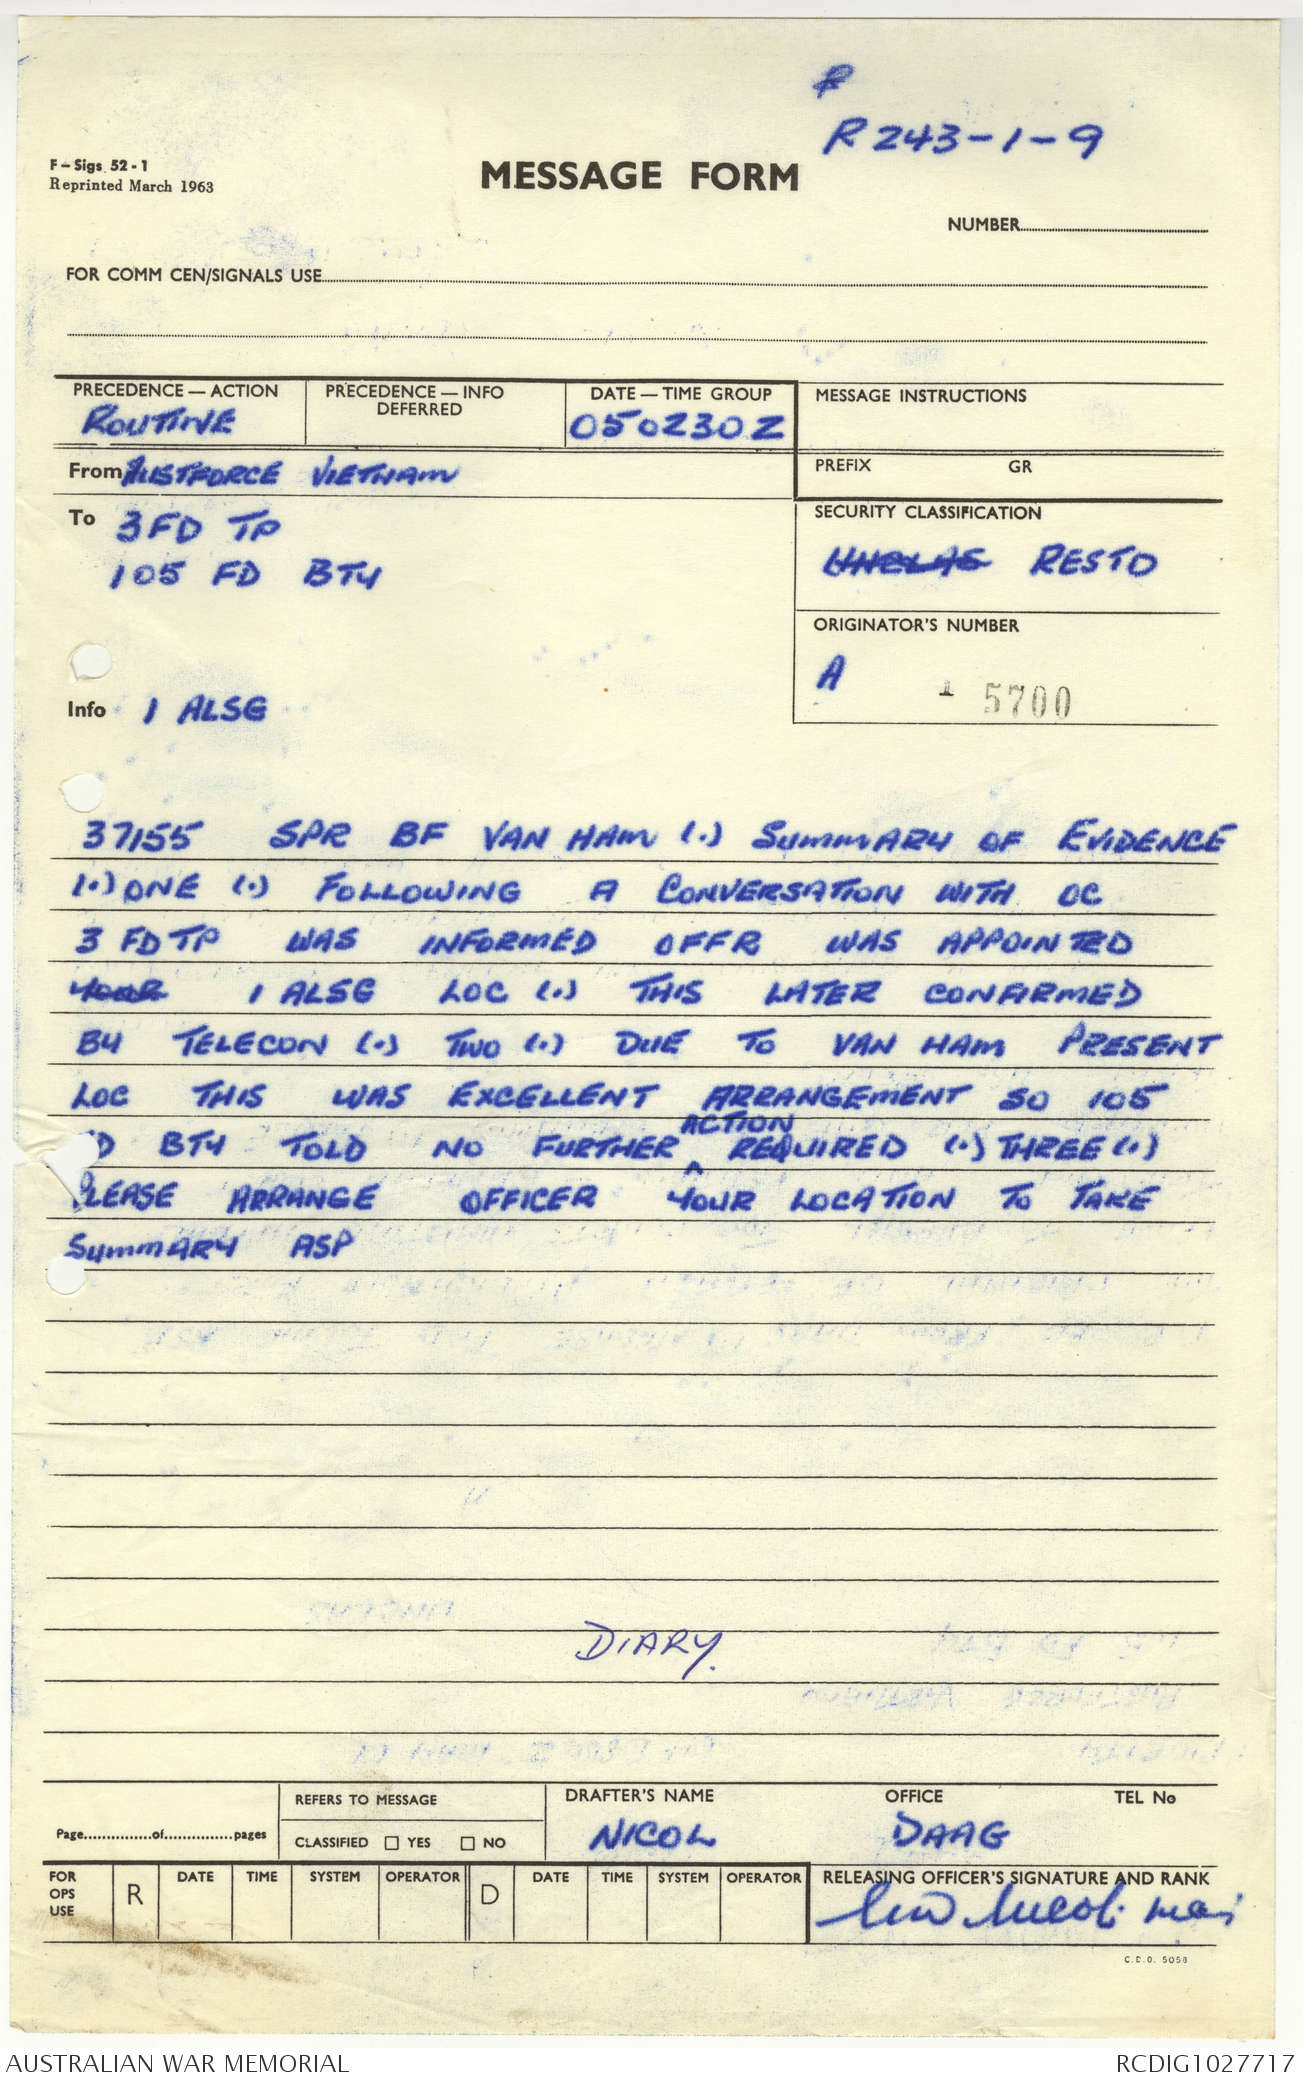 R
R243-1-9
F-Sigs 52-1
Reprinted March 1963
MESSAGE FORM
NUMBER
FOR COMM CEN/SIGNALS USE
PRECEDENCE — ACTION
ROUTINE
PRECEDENCE — INFO
DEFERRED
DATE — TIME GROUP
050230Z
MESSAGE INSTRUCTIONS
From AUSTFORCE VIETNAM
PREFIX GR
To 3 FD TP
105 FD BTY
SECURITY CLASSIFICATION
UNCLAS RESTD
ORIGINATOR'S NUMBER
A 1 5700
Info 1 ALSG
37155 SPR BF VAN HAM (.) SUMMARY OF EVIDENCE
(.) ONE (.) FOLLOWING A CONVERSATION WITH OC
3 FD TP WAS INFORMED OFFR WAS APPOINTED
YOUR 1 ALSG LOC (.) THIS LATER CONFIRMED
BY TELECON (.) TWO (.) DUE TO VAN HAM PRESENT
LOC THIS WAS EXCELLENT ARRANGEMENT SO 105
ACTION
D BTY TOLD NO FURTHER REQUIRED (.) THREE (.)
PLEASE ARRANGE OFFICER YOUR LOCATION TO TAKE
SUMMARY ASP
DIARY.
Page..............of..............pages
REFERS TO MESSAGE
CLASSIFIED YES NO
DRAFTER'S NAME
NICOL
OFFICE
DAAG
TEL No
FOR
OPS
USE
R DATE TIME SYSTEM OPERATOR
D DATE TIME SYSTEM OPERATOR
RELEASING OFFICER'S SIGNATURE AND RANK
Nicol Maj
C.D.O. 5058
AUSTRALIAN WAR MEMORIAL
RCDIG1027717